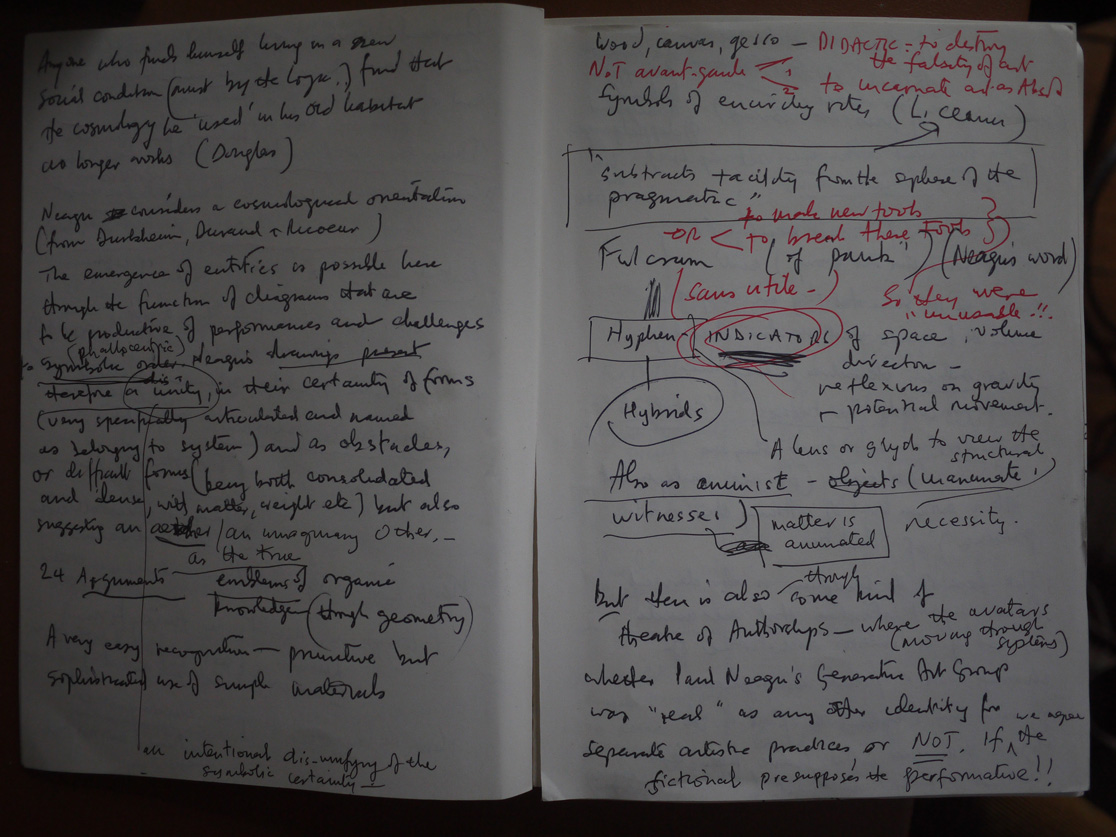 Anyone who finds himself living in a new
social condition (must by the logic..) find that
the cosmology he used in his old habitat
no longer works (Douglas)
Neagu considers a cosmological orientation
(from Durkheim, Durand + Ricoeur)
The emergence of entities is possible here
through the function of diagrams that are
to be productive of performances and challenges
(phallocentric)
symbolic order. Neagu's drawings present
therefore a unity, in their certainty of forms
(very specifically articulated and named
as belonging to system) and as obstacles,
or difficult forms (being both consolidated
and dense, with matter, weight etc) but also
suggesting an /an imaginary Other. –
as the true
24 Arguments emblems of organic
knowledge (through geometry)
A very easy recognition – primitive but
sophisticated use of simple materials
an intentional dis-unifying of the
symbolic certainty –
Wood, canvas, gesso – DIDACTIC = to destroy
the falsity of art
NOT avant-garde < 1
2 to incarnate art as Absd
Symbols of rites (L, )
"subtracts tactility from the sphere of the
pragmatic"
to make new tools
OR < to break these tools
Fulcrum (of panic) (Neagu's word)
(sans utile -) So they were
"unusable"!!.
Hyphen INDICATORS of space, volume
direction –
reflexions on gravity
+ potential movement.
Hybrids
A lens or glyph to view the
structural
necessity.
Also as animist – objects (inanimate
witnesses)
matter is
animated
through
but there is also some kind of
theatre of Authorships – where the avatars
(moving through
systems)
whether Paul Neagu's Generative Art Group
was "real" as any other identity for
separate artistic practices or NOT. If we agree the
fictional presupposes the performative!!